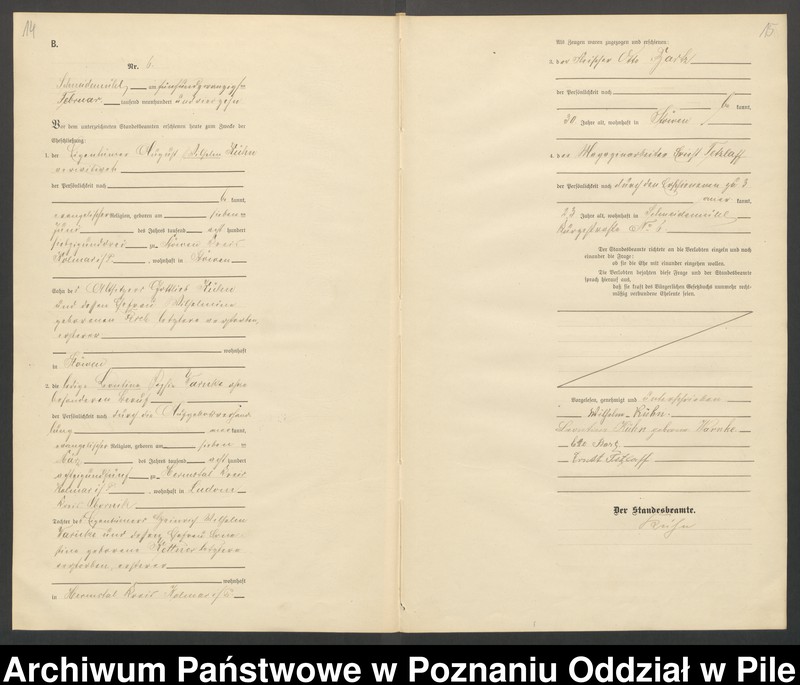 14
B.
Nr. 6
Schneidemühl, am fünfundzwanzigsten
Februar tausend neunhundert und vierzehn
Vor dem unterzeichneten Standesbeamten erschienen heute zum Zwecke der
Eheschließung:
1. der Eigentümer August Wilhelm Kühn
der Persönlichkeit nach
be kannt,
evangelischer Religion, geboren am sieben
Juni des Jahres tausend acht hundert
zu Stöwen Kreis
Kolmar i/P , wohnhaft in Stöwen
Sohn des Altsitzers Gottlieb Kühn
und dessen Ehefrau Wilhelmine
geborenen letztere verstorben,
ersterer
wohnhaft
in Stöwen
2. die ledige Karoline Warnke ohne
besonderen Beruf
der Persönlichkeit nach durch die
lung aner kannt,
evangelischer Religion, geboren am sieben
März des Jahres tausend acht hundert
achtzigundfünf zu Hermstal Kreis
Kolmar i/P , wohnhaft in
Kreis
Tochter des Eigentümers Heinrich Wilhelm
Warnke und dessen Ehefrau
geborene letztere
verstorben, ersterer
wohnhaft
in Hermstal Kreis Kolmar i/P
15
Als Zeugen waren zugezogen und erschienen:
3. der Fleischer Otto
der Persönlichkeit nach
be kannt,
30 Jahre alt, wohnhaft in Stöwen
4. der Magazinarbeiter Ernst Tetzlaff
der Persönlichkeit nach durch den Erschienenen zu 3
aner kannt,
23 Jahre alt, wohnhaft in Schneidemühl,
No 6
Der Standesbeamte richtete an die Verlobten einzeln und nach
einander die Frage:
ob sie die Ehe mit einander eingehen wollen.
Die Verlobten bejahten diese Frage und der Standesbeamte
sprach hierauf aus,
daß sie kraft des Bürgerlichen Gesetzbuchs nunmehr recht-
mäßig verbundene Eheleute seien.
Vorgelesen, genehmigt und unterschrieben
Wilhelm Kühn
Karoline Kühn geborene Warnke
Otto
Ernst Tetzlaff
Der Standesbeamte.
Archiwum Państwowe w Poznaniu Oddział w Pile